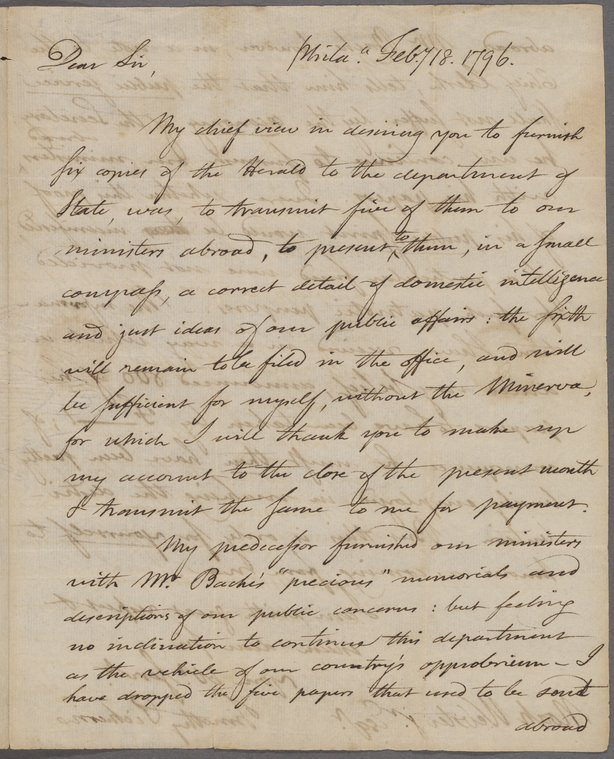 Dear Sir,
Phila.a Feby 18. 1796.
My chief view in desiring you to furnish
six copies of the Herald to the department of
State, was, to transmit five of them to our
ministers abroad, to present, to them, in a small
compass, a correct detail of domestic intelligence
and just ideas of our public affairs: the sixth
will remain to be filed in the office, and will
be sufficient for myself, without the Minerva,
for which I will thank you to make up
my account to the close of the present month
& transmit the same to me for payment.
My predecessor furnished our ministers
with Mr. Bache's "precious" memorials and
descriptions of our public concerns: but feeling
no inclination to continue this department
as the vehicle of our country's opprobrium – I
have dropped the five papers that used to be sent
abroad